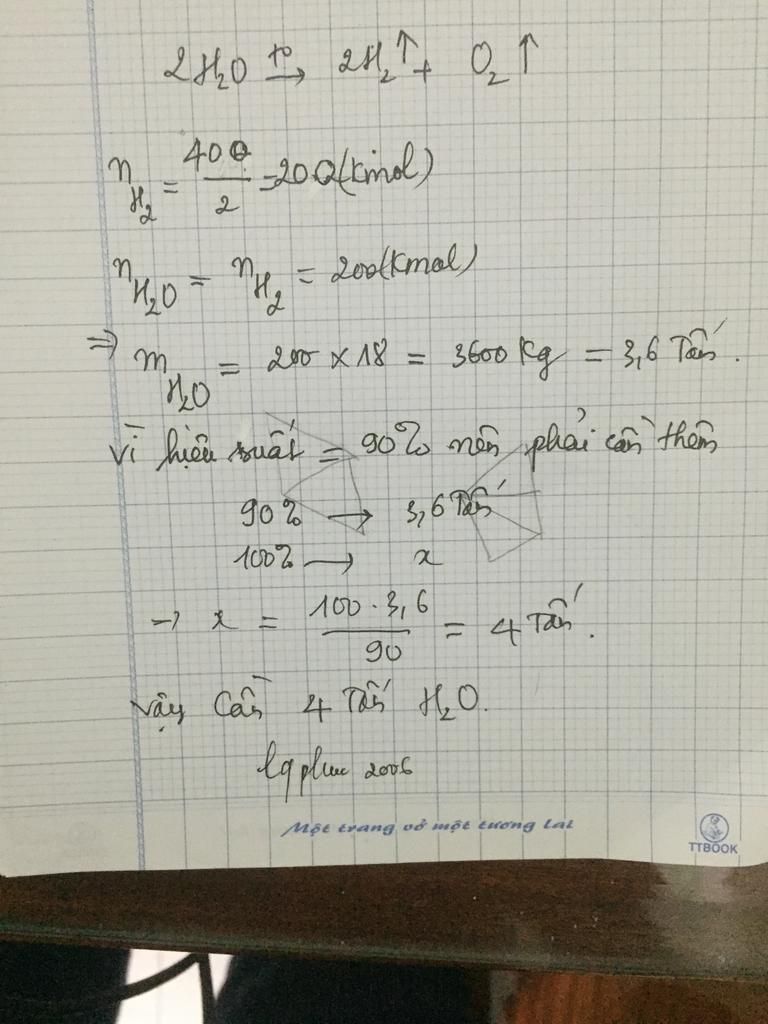 2H₂O t° → 2H₂↑ + O₂↑
n H₂ = 400/2 = 200 (Kmol)
n H₂O = n H₂ = 200 (Kmol)
⇒ m H₂O = 200 × 18 = 3600 Kg = 3,6 Tấn.
Vì hiệu suất = 90% nên phải cần thêm
90% → 3,6 Tấn
100% → x
→ x = 100 . 3,6 / 90 = 4 Tấn.
Vậy Cần 4 Tấn H₂O.
lqphuc 2006
Một trang vở một tương lai
TTBOOK